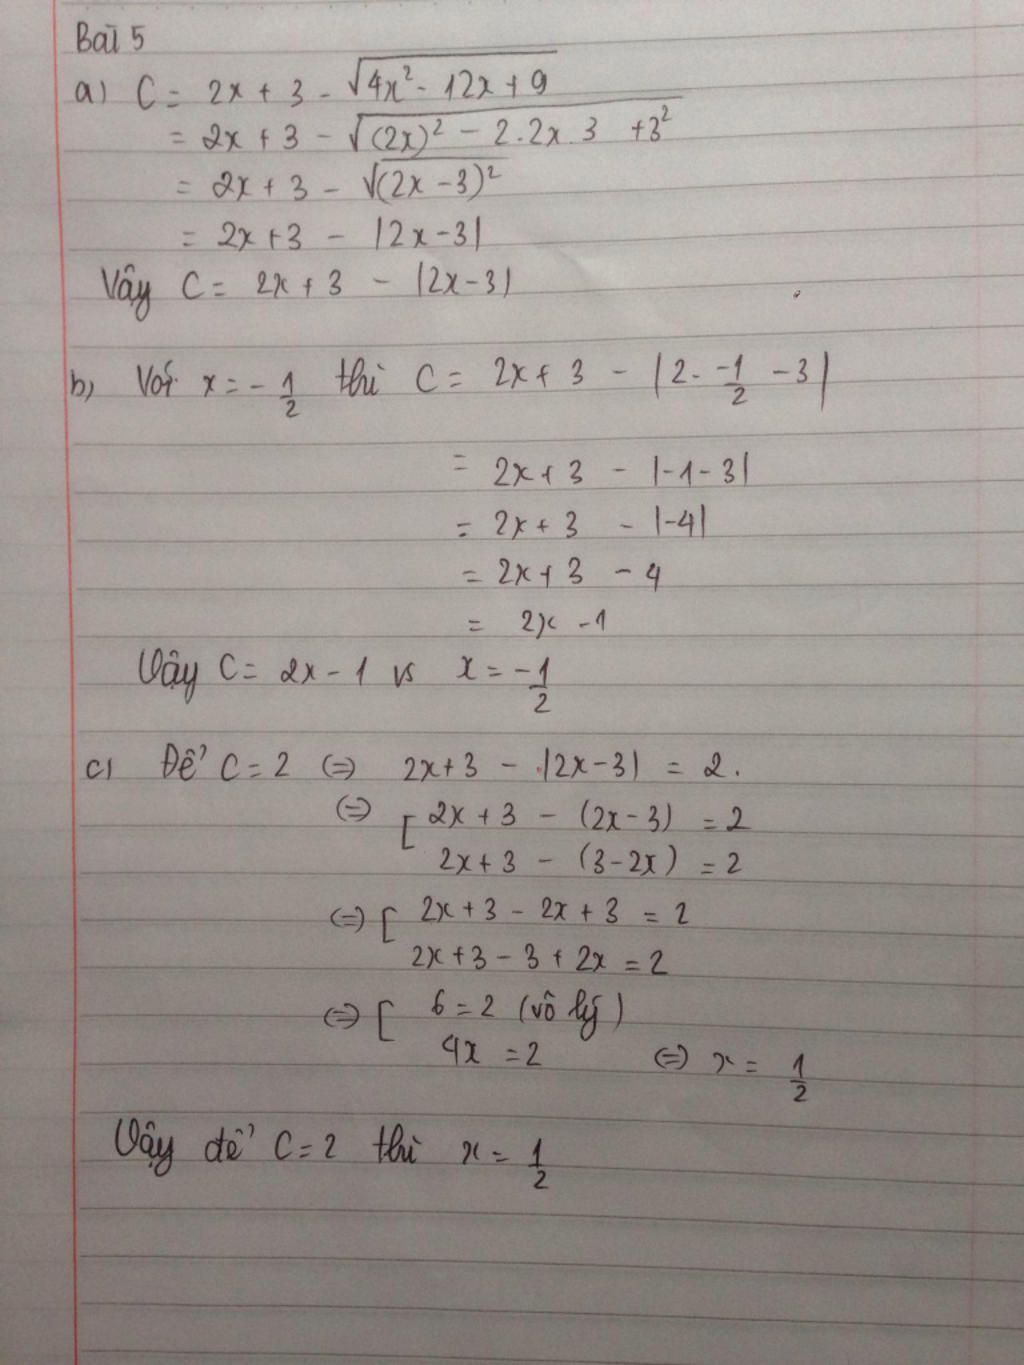 Bài 5
a) C = 2x + 3 - √(4x² - 12x + 9)
= 2x + 3 - √((2x)² - 2.2x.3 + 3²)
= 2x + 3 - √((2x - 3)²)
= 2x + 3 - |2x - 3|
Vậy C = 2x + 3 - |2x - 3|
b) Với x = -1/2 thì C = 2x + 3 - |2. -1/2 - 3|
= 2x + 3 - |-1 - 3|
= 2x + 3 - |-4|
= 2x + 3 - 4
= 2x - 1
Vậy C = 2x - 1 vs x = -1/2
c) Để C = 2 (=) 2x + 3 - |2x - 3| = 2.
(=) [ 2x + 3 - (2x - 3) = 2
2x + 3 - (3 - 2x) = 2
(=) [ 2x + 3 - 2x + 3 = 2
2x + 3 - 3 + 2x = 2
(=) [ 6 = 2 (vô lý)
4x = 2 (=) x = 1/2
Vậy để C = 2 thì x = 1/2